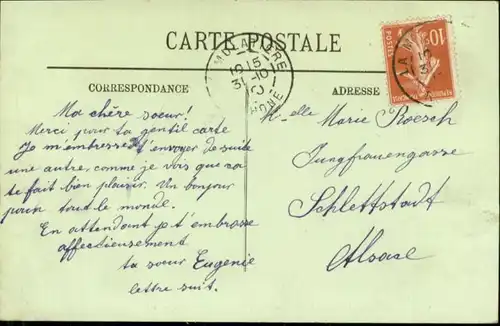 CARTE POSTALE
LA MULATIÈRE
1915
31-10
RHONE
LA M
10
POSTES
CORRESPONDANCE
ADRESSE
Ma chère soeur!
Merci pour ta gentil carte
Je m'embresse t'envoyer de suite
une autre, comme je vois que ca
te fait bien plaisir. Un bonjour
pour tout le monde.
En attendant je t'embrasse
affectieusement
ta soeur Eugenie
lettre suit.
M-elle Marie Roesch
Jungfrauengasse
Schlettstadt
Alsace